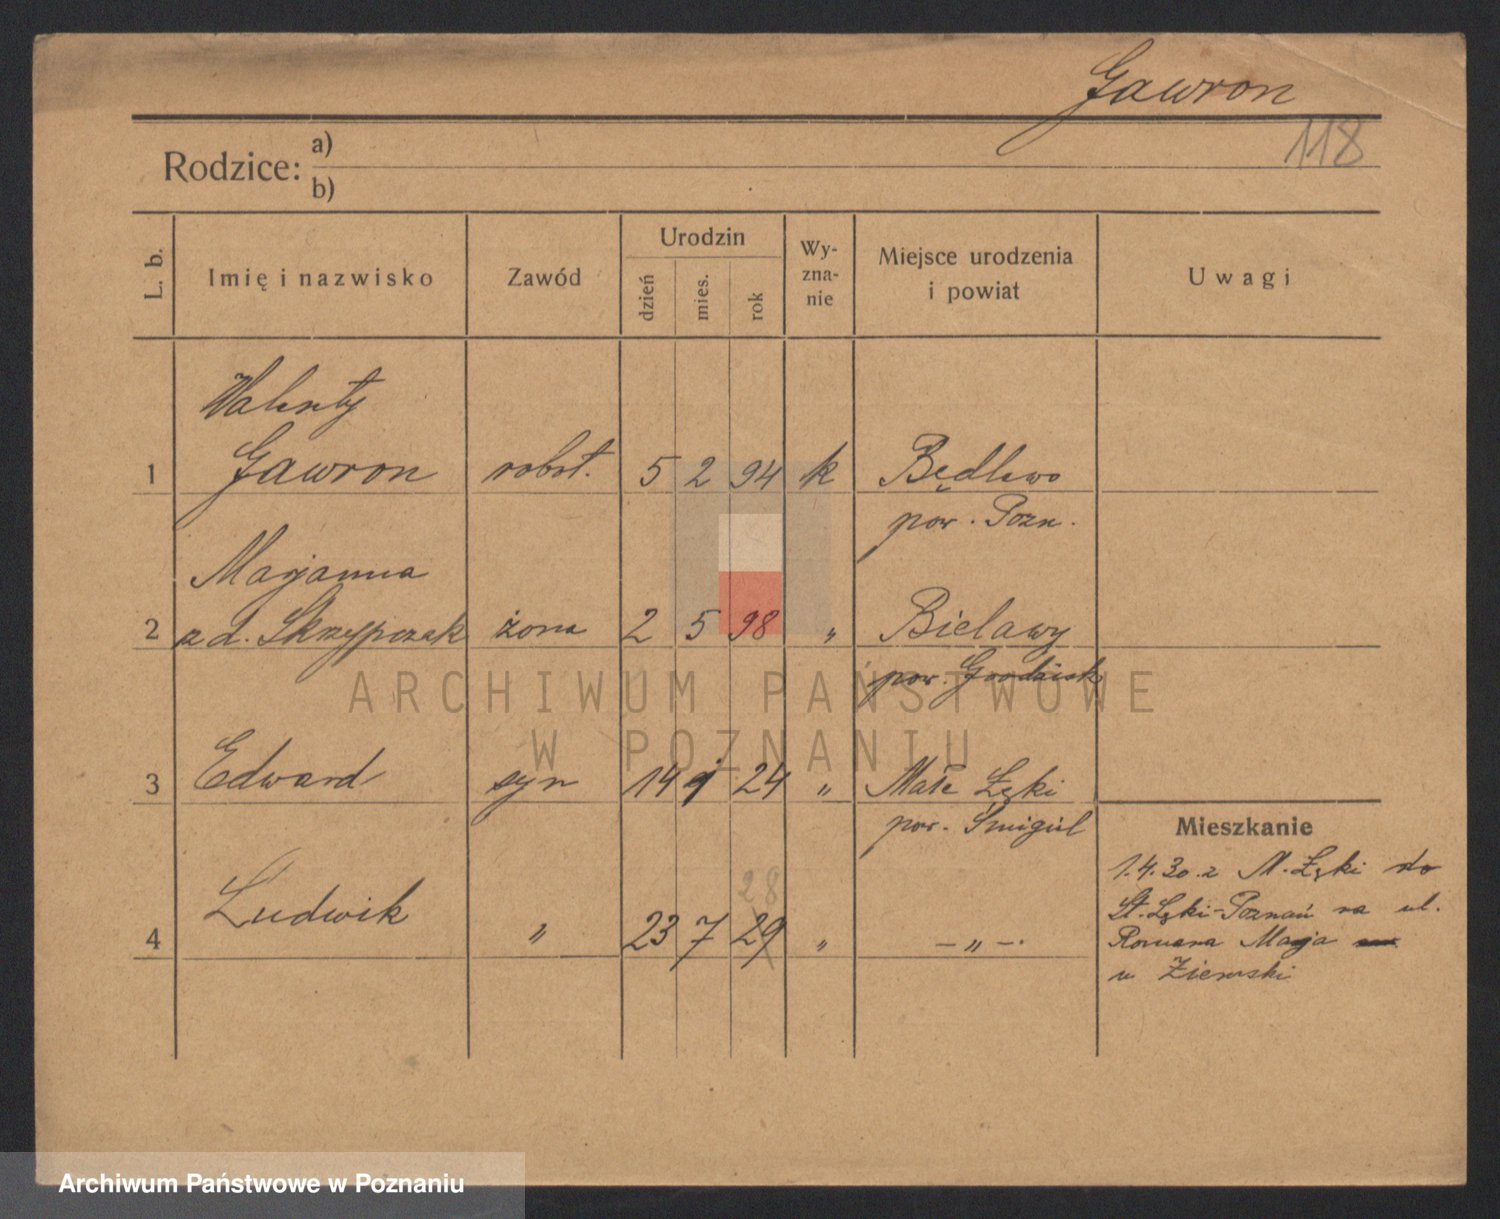 Gawron
118
Rodzice: a)
b)
L. b. Imię i nazwisko Zawód Urodzin dzień mies. rok Wy-zna-nie Miejsce urodzenia i powiat Uwagi
Walenty
1 Gawron robot. 5 2 94 k Będlewo
pow. Pozn.
Marjanna
2 z d. Skrzypczak żona 2 5 98 „ Bielawy
pow. Grodzisk
ARCHIWUM PAŃSTWOWE
W POZNANIU
3 Edward syn 14 1 24 „ Małe Łęki
pow. Śmigiel
Mieszkanie
28
4 Ludwik „ 23 7 29 „ – „ –.
1.4.30. z M. Łęki do
St. Łęki-Poznań na ul.
Romana Maja
u Ziemski
Archiwum Państwowe w Poznaniu